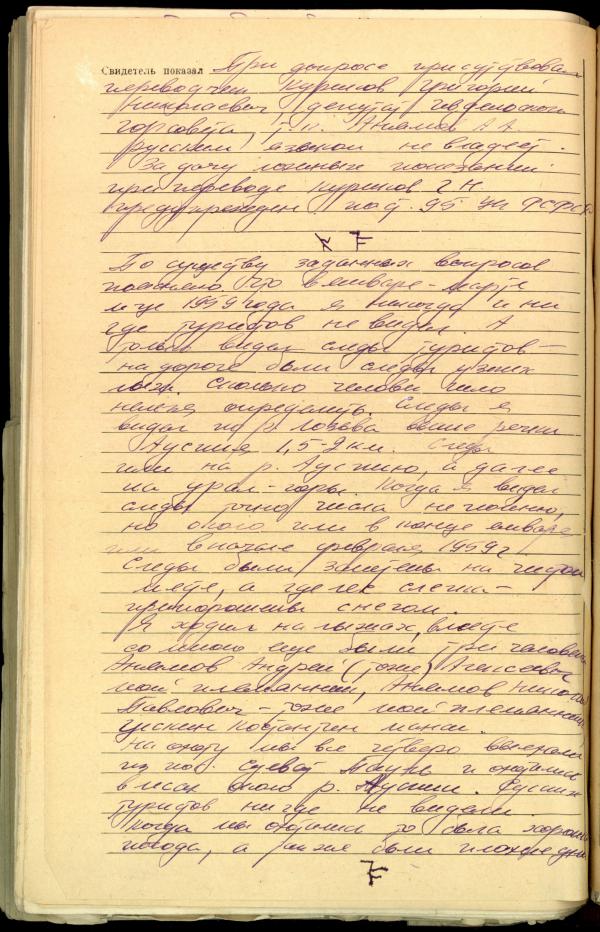 Свидетель показал При допросе присутствовал
переводчик Куриков Григорий
Николаевич депутат Ивдельского
горсовета, т.к. Анямов А А.
русским языком не владеет.
За дачу ложных показаний
при переводе Куриков Г Н
предупрежден по ст. 95 УК РСФСР
По существу заданных вопросов
поясняю, что в январе - марте
м-це 1959 года я никогда и ни
где туристов не видел. А
только видел следы туристов -
на дороге были следы узких
лыж. Сколько человек шло
нельзя определить. Следы я
видел на р. Лозьва выше речки
Ауспия 1,5-2 км. Следы
шли на р. Ауспию, а далее
на урал-горы. Когда я видел
следы точно числа не помню,
но около или в конце января
или в начале февраля 1959 г
Следы были заметены на чистом
месте, а где лес слегка -
припорошены снегом.
Я ходил на лыжах, вместе
со мною еще были три человека
Анямов Андрей (тоже) Алексеевич
мой племянник, Анямов Николай
Павлович - тоже мой племянник,
Цескин Костантен манси.
На охоту мы все четверо выехали
из пос. Суеват Пауль и охотились
в лесах около р. Ауспии. Русских
туристов нигде не видели
Когда мы охотились то была хорошая
погода, а также были и плохие дни